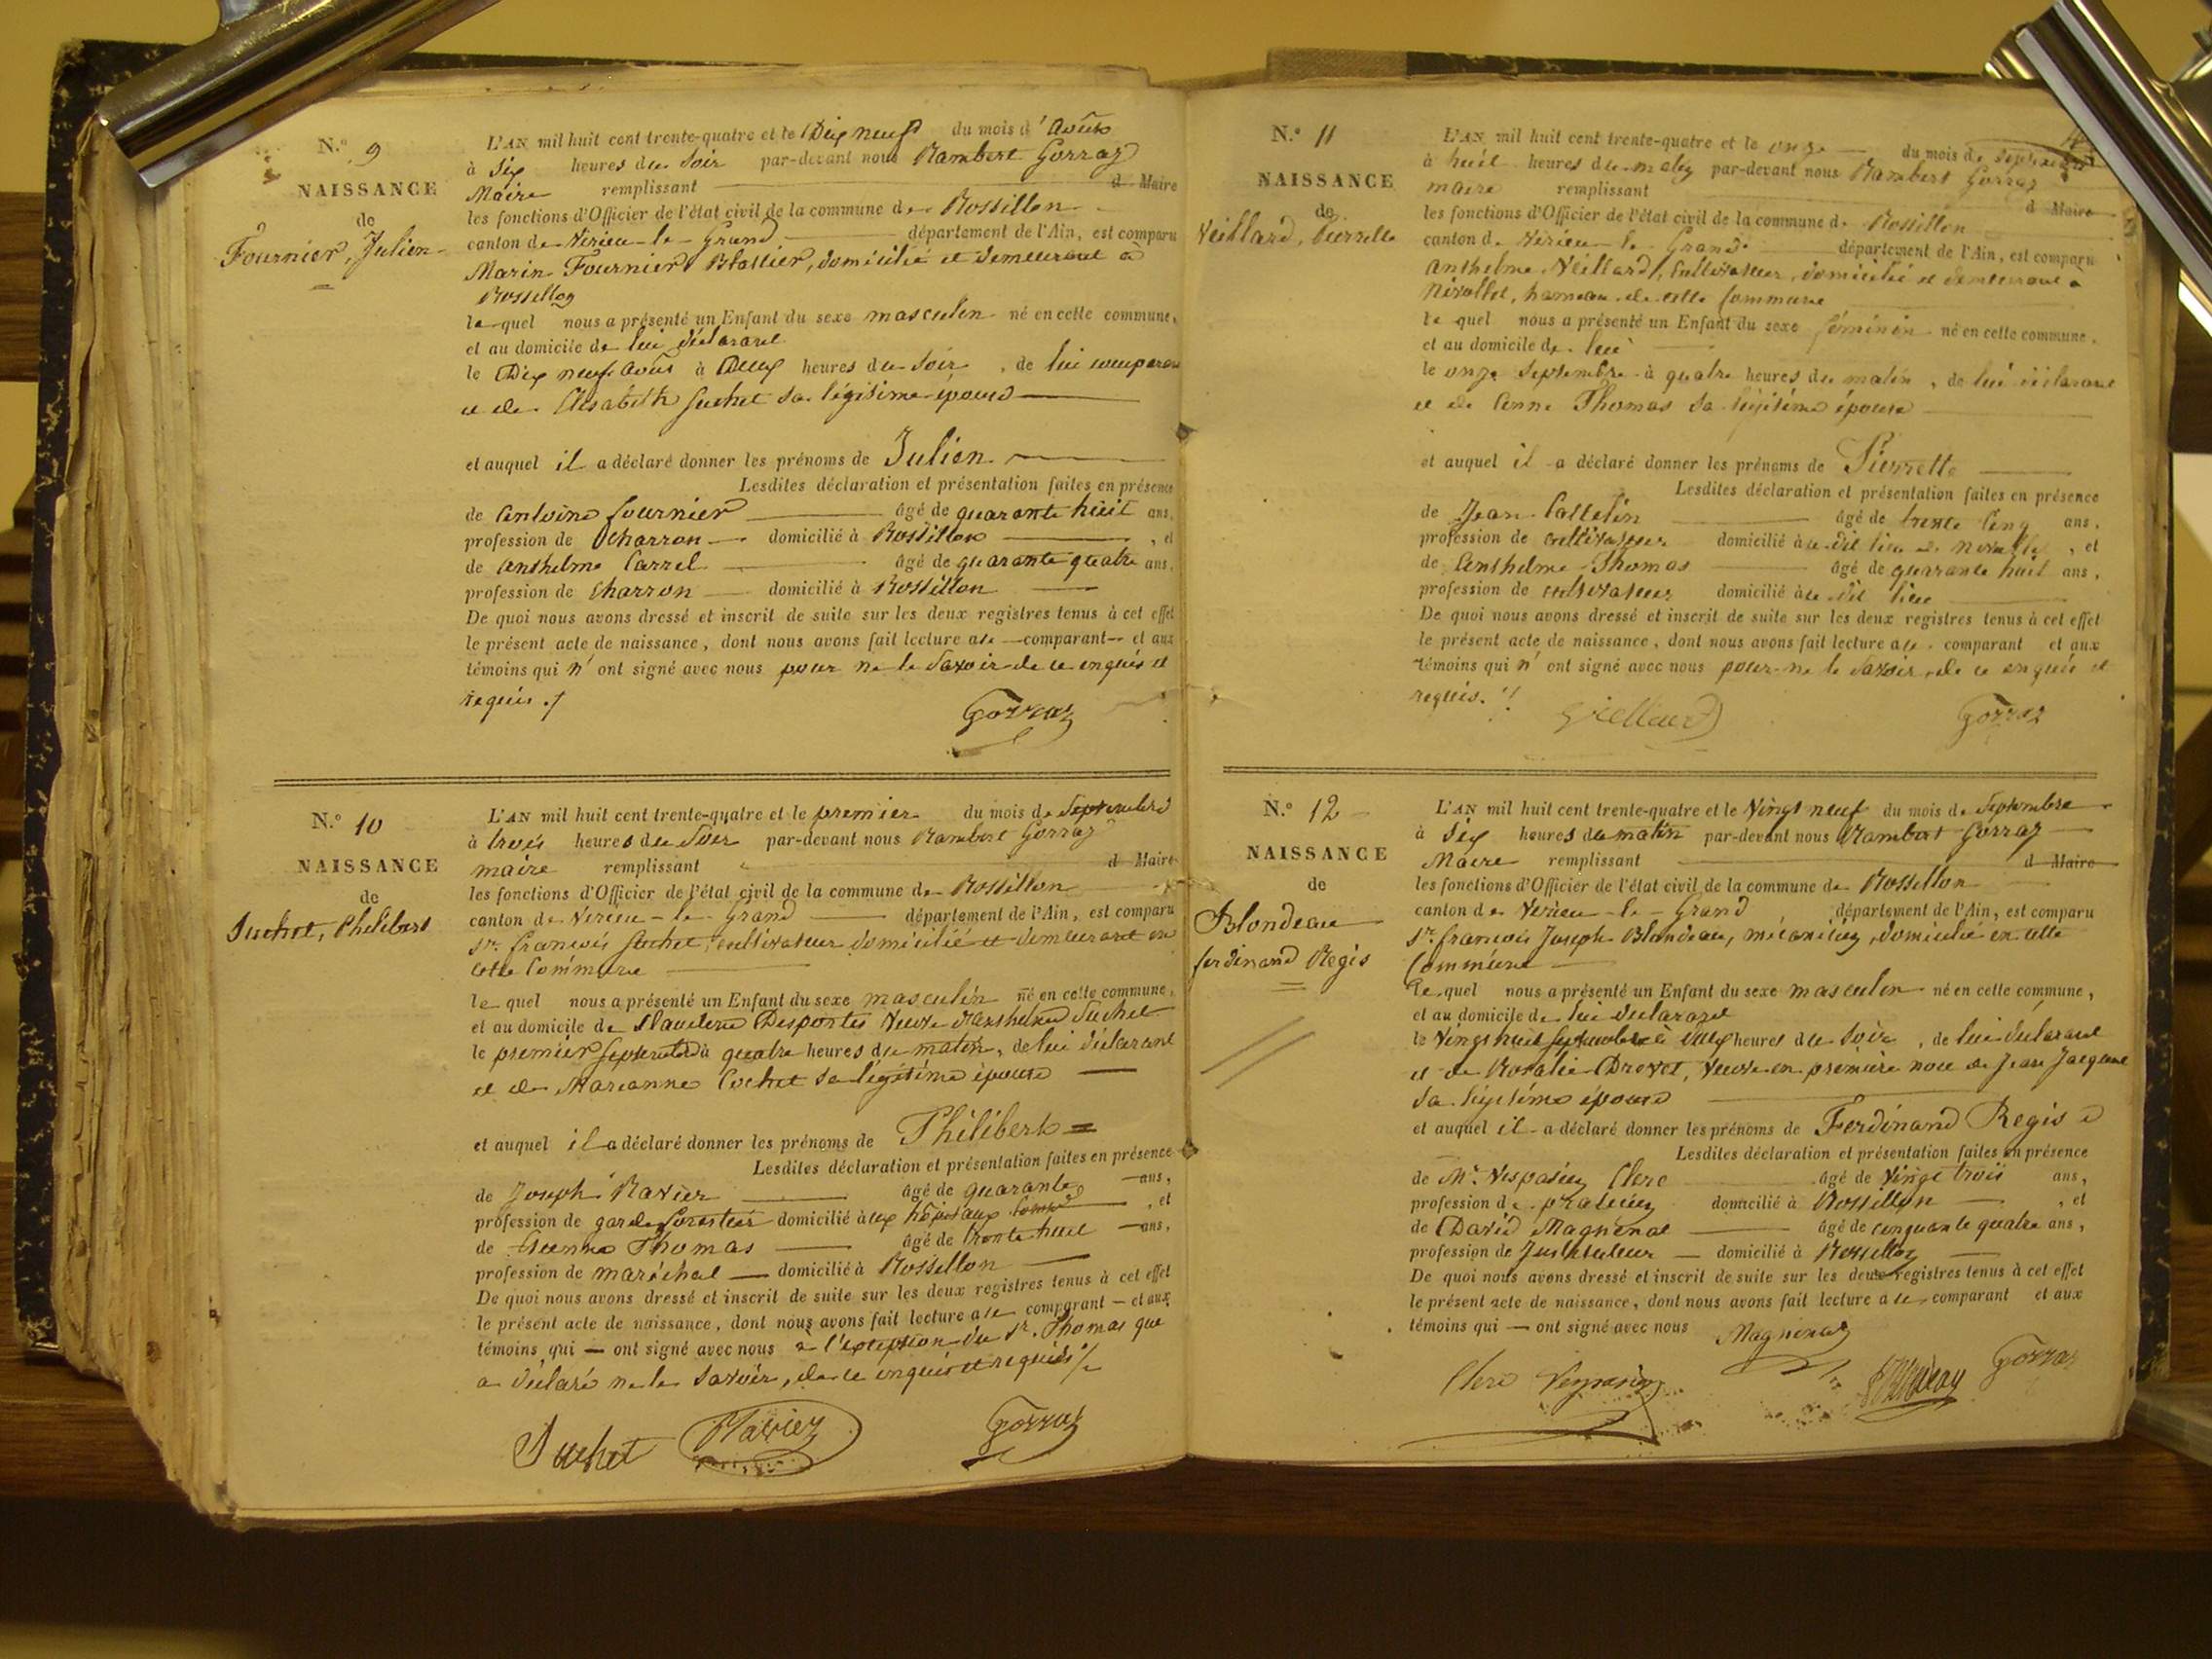 N.º 9
NAISSANCE
de
Fournier, Julien
L'AN mil huit cent trente-quatre et le Dix neuf du mois d'Août
à Six heures du Soir par-devant nous Rambert Gorraz
Maire remplissant d Maire
les fonctions d'Officier de l'état civil de la commune de Rossillon
canton de Virieu-le-Grand département de l'Ain, est comparu
Marin Fournier, domicilié et demeurant à
Rossillon
le quel nous a présenté un Enfant du sexe masculin né en cette commune,
et au domicile de lui déclarant
le Dix neuf Août à Deux heures du Soir, de lui comparant
et de Elisabeth Suchet sa légitime épouse
et auquel il a déclaré donner les prénoms de Julien
Lesdites déclaration et présentation faites en présence
de Antoine Fournier âgé de quarante huit ans,
profession de Charron domicilié à Rossillon, et
de Anthelme Carrel âgé de quarante quatre ans,
profession de Charron domicilié à Rossillon
De quoi nous avons dressé et inscrit de suite sur les deux registres tenus à cet effet
le présent acte de naissance, dont nous avons fait lecture au comparant et aux
témoins qui n'ont signé avec nous pour ne le Savoir de ce enquis et
requis ./
Gorraz
N.º 10
NAISSANCE
de
Suchet, Philibert
L'AN mil huit cent trente-quatre et le premier du mois de Septembre
à trois heures du Soir par-devant nous Rambert Gorraz
maire remplissant d Maire
les fonctions d'Officier de l'état civil de la commune de Rossillon
canton de Virieu-le-Grand département de l'Ain, est comparu
Sr. françois Suchet, cultivateur domicilié et demeurant en
cette Commune
le quel nous a présenté un Enfant du sexe masculin né en cette commune,
et au domicile de Claudine Desportes Veuve d'Anthelme Suchet
le premier Septembre à quatre heures du matin, de lui déclarant
et de Marianne Cochet sa légitime épouse
et auquel il a déclaré donner les prénoms de Philibert
Lesdites déclaration et présentation faites en présence
de Joseph Ravier âgé de quarante ans,
profession de garde forestier domicilié aux hopitaux, et
de Thomas âgé de trente huit ans,
profession de maréchal domicilié à Rossillon
De quoi nous avons dressé et inscrit de suite sur les deux registres tenus à cet effet
le présent acte de naissance, dont nous avons fait lecture au comparant et aux
témoins qui ont signé avec nous à l'exeption du Sr. Thomas que
a déclaré ne le Savoir, de ce enquis et requis /.
Suchet Ravier Gorraz
N.º 11
NAISSANCE
de
Veillard, Pierrette
L'AN mil huit cent trente-quatre et le onze du mois de septembre
à huit heures du matin par-devant nous Rambert Gorraz
maire remplissant d Maire
les fonctions d'Officier de l'état civil de la commune de Rossillon
canton de Virieu-le-Grand département de l'Ain, est comparu
Anthelme Veillard, Cultivateur, domicilié et demeurant à
Nivollet, hameau de cette Commune
le quel nous a présenté un Enfant du sexe féminin né en cette commune,
et au domicile de lui
le onze Septembre à quatre heures du matin, de lui déclarant
et de Anne Thomas sa légitime épouse
et auquel il a déclaré donner les prénoms de Pierrette
Lesdites déclaration et présentation faites en présence
de Jean âgé de trente Cinq ans,
profession de cultivateur domicilié à ce dit lieu de, et
de Anthelme Thomas âgé de quarante huit ans,
profession de cultivateur domicilié à ce dit lieu
De quoi nous avons dressé et inscrit de suite sur les deux registres tenus à cet effet
le présent acte de naissance, dont nous avons fait lecture au comparant et aux
témoins qui n'ont signé avec nous pour ne le savoir, de ce enquis et
requis. //
Gorraz
N.º 12
NAISSANCE
de
Blondeau
ferdinand Regis
L'AN mil huit cent trente-quatre et le Vingt neuf du mois de Septembre
à Six heures du matin par-devant nous Rambert Gorraz
Maire remplissant d Maire
les fonctions d'Officier de l'état civil de la commune de Rossillon
canton de Virieu-le-Grand département de l'Ain, est comparu
Sr. francois Joseph Blondeau, mécanicien, domicilié en cette
Commune
le quel nous a présenté un Enfant du sexe masculin né en cette commune,
et au domicile de lui déclarant
le Vingt huit Septembre à heures du Soir, de lui déclarant
et de Rosalie Drevet, Veuve en première noce de Jean Jacquand
Sa légitime épouse
et auquel il a déclaré donner les prénoms de Ferdinand Regis
Lesdites déclaration et présentation faites en présence
de Mr. Vespasien Clerc âgé de Vingt trois ans,
profession de praticien domicilié à Rossillon, et
de David Magnenat âgé de cinquante quatre ans,
profession de Instituteur domicilié à Rossillon
De quoi nous avons dressé et inscrit de suite sur les deux registres tenus à cet effet
le présent acte de naissance, dont nous avons fait lecture au comparant et aux
témoins qui ont signé avec nous Magnenat
Clerc Vespasien Blondeau Gorraz